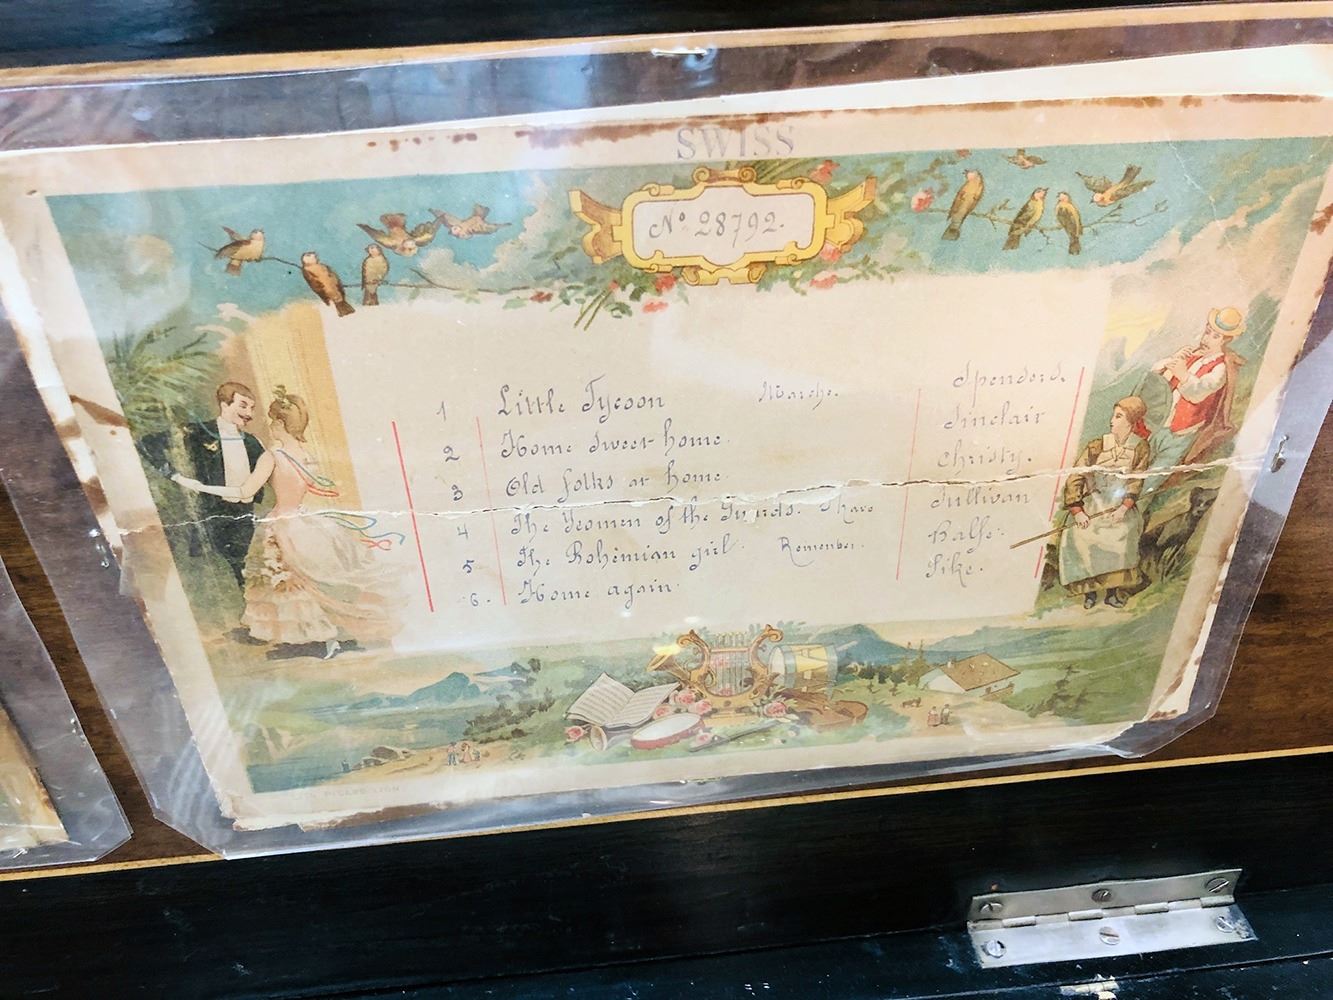 SWISS
Nº 28792.
1 Little Tycoon Marche. Spenderd.
2 Home sweet home. Sinclair
3 Old folks at home. Christy.
4 The Yeomen of the Sullivan
5 The Bohemian girl. Remember. Balfe.
6. Home again Pike.